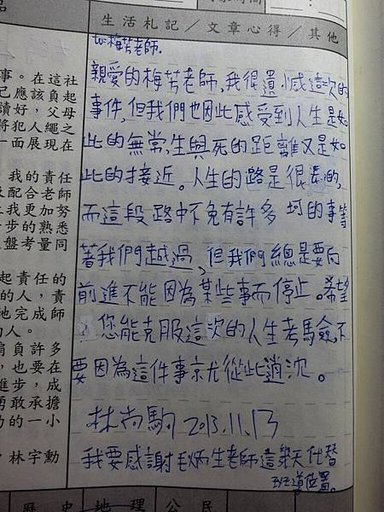 生活札記／文章心得／其他
to梅芳老師.
親愛的梅芳老師,我很遺憾這次的
事件,但我們也因此感受到人生是如
此的無常,生與死的距離又是如
此的接近。人生的路是很遠的,
而這段路中不免有許多 坷的事等
著我們越過,但我們總是要向
前進不能因為某些事而停止。希望
您能克服這次的人生考驗,不
要因為這件事就從此消沉。
林尚駒 2013.11.13
我要感謝 老師這幾天代替
班導位置。
事。在這社
己應該負起
讀好，父母
將犯人繩之
一面展現在
我的責任
及配合老師
上我更加努
步的熟悉
盤考量同
起責任的
的人，責
地完成師
的人。
肩負許多
，也要在
進步，成
勇敢承擔
功的一小
，林宇勳
歷史 地理 公民